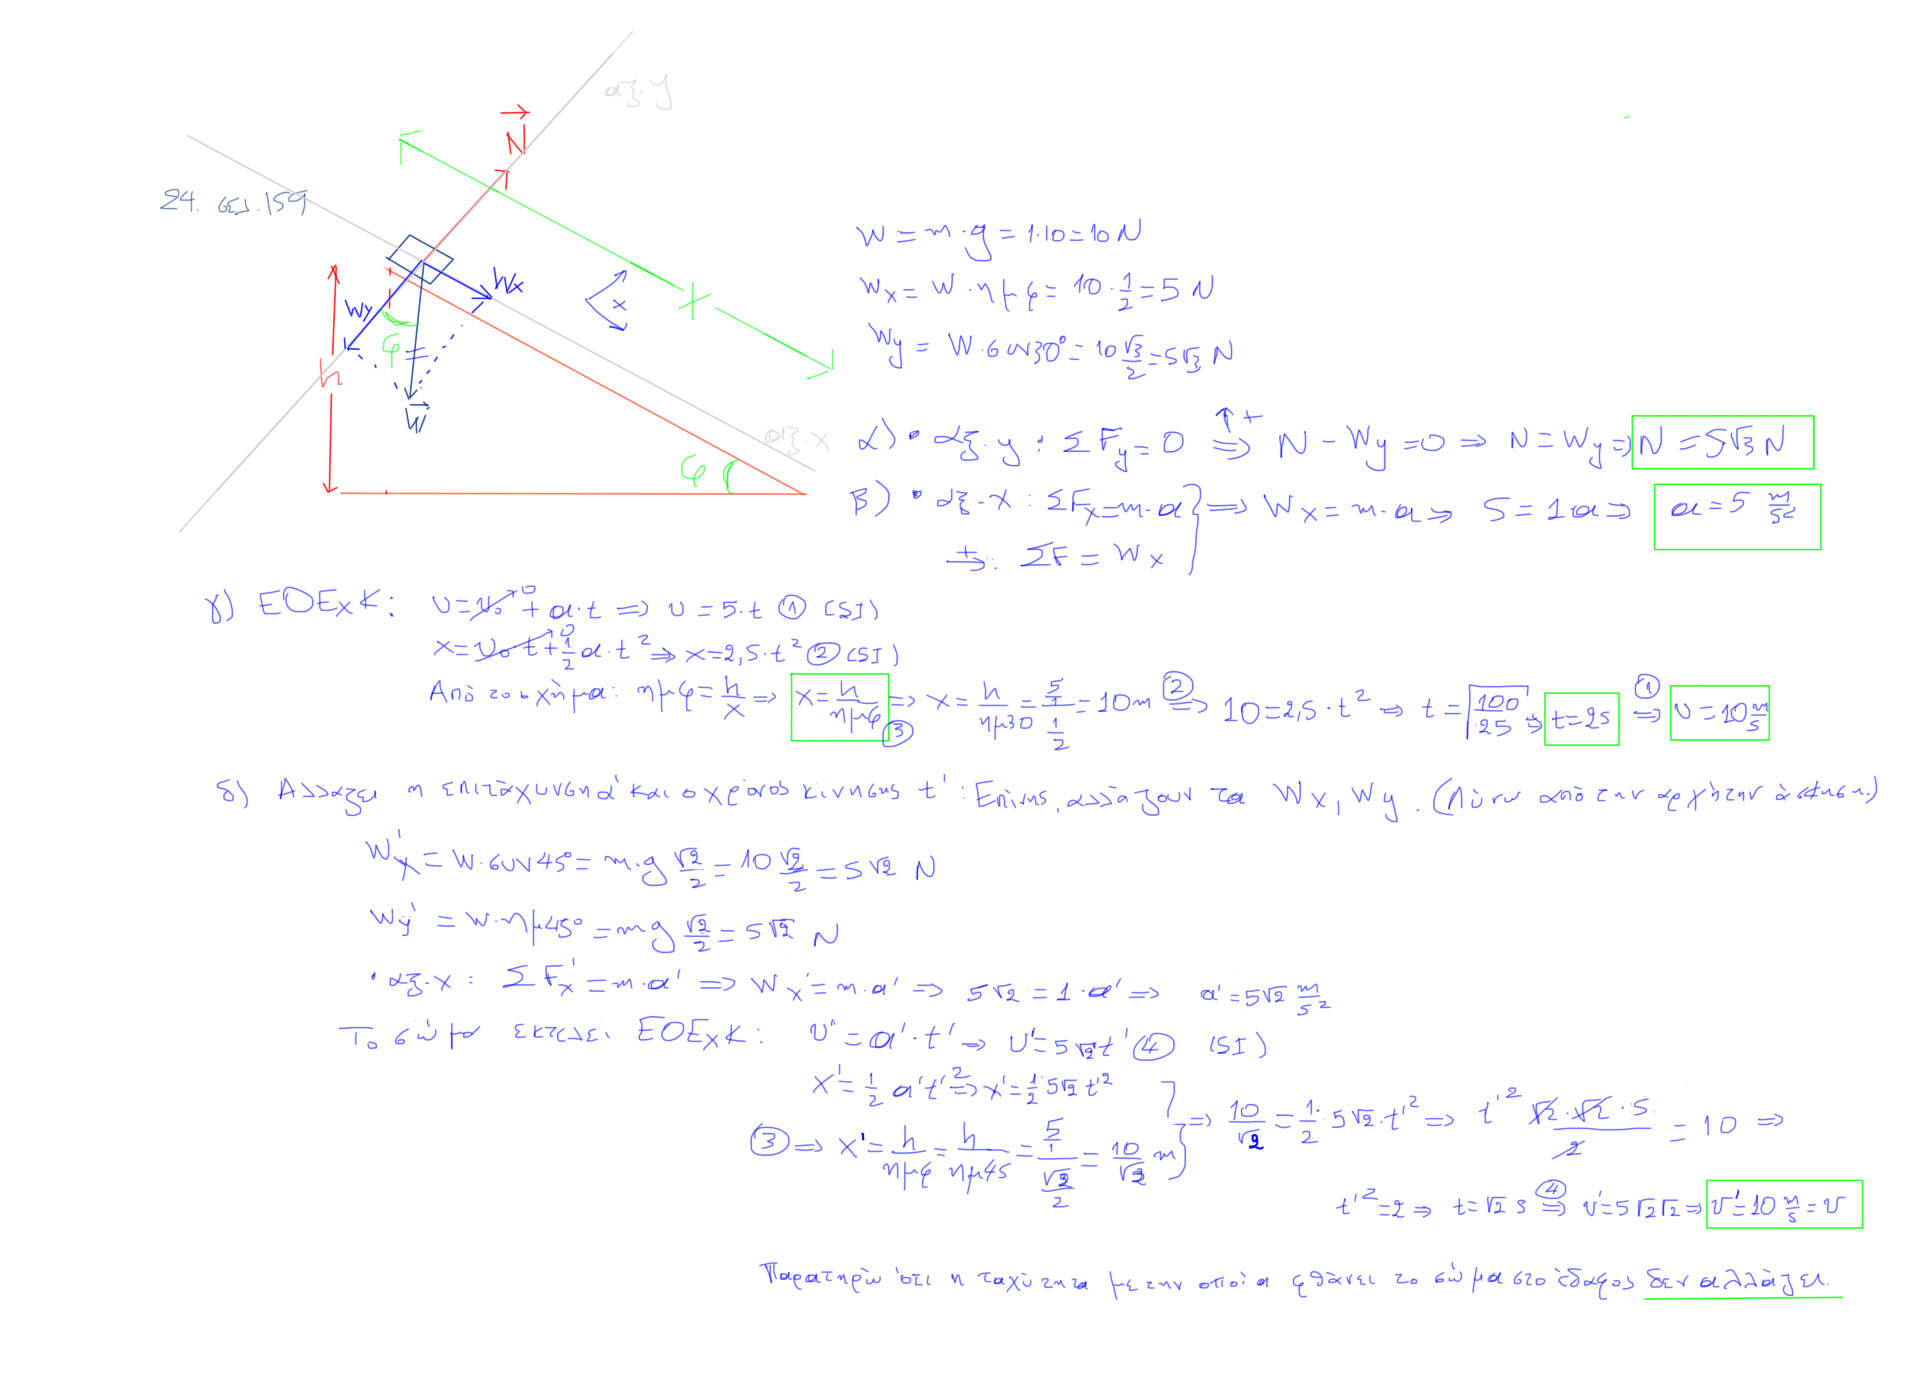 αξ.y
N
24. σελ.159
Wx
Wy
x
X
φ
h
W
αξ.x
φ
W = m·g = 1·10 = 10 N
Wx = W·ημφ = 10·1/2 = 5 N
Wy = W·συν30° = 10 √3/2 = 5√3 N
α) • αξ.y : ΣFy = 0 ⇒ ↑+ N - Wy = 0 ⇒ N = Wy ⇒ N = 5√3 N
β) • αξ.x : ΣFx = m·a } ⇒ Wx = m·a ⇒ 5 = 1·a ⇒ a = 5 m/s²
+→: ΣF = Wx
γ) ΕΟΕxΚ: υ = υ₀ + a·t ⇒ υ = 5·t ① (SI)
x = υ₀t + 1/2 a·t² ⇒ x = 2,5·t² ② (SI)
Από το σχήμα: ημφ = h/x ⇒ x = h/ημφ ③ ⇒ x = h/ημ30 = 5/1 / 1/2 = 10m ②⇒ 10 = 2,5·t² ⇒ t = √100/25 ⇒ t = 2s ①⇒ υ = 10 m/s
δ) Αλλάζει η επιτάχυνση a' και ο χρόνος κίνησης t' : Επίσης, αλλάζουν τα Wx, Wy. (Λύνω από την αρχή την άσκηση.)
W'x = W·συν45° = m·g √2/2 = 10 √2/2 = 5√2 N
Wy' = W·ημ45° = mg √2/2 = 5√2 N
• αξ.x : ΣFx' = m·a' ⇒ Wx' = m·a' ⇒ 5√2 = 1·a' ⇒ a' = 5√2 m/s²
Το σώμα εκτελεί ΕΟΕxΚ: υ' = a'·t' ⇒ υ' = 5√2t' ④ (SI)
x' = 1/2 a't'² ⇒ x' = 1/2·5√2 t'²
③ ⇒ x' = h/ημφ = h/ημ45 = 5/1 / √2/2 = 10/√2 m } ⇒ 10/√2 = 1/2·5√2·t'² ⇒ t'² √2·√2·5/2 = 10 ⇒
t'² = 2 ⇒ t = √2 s ④⇒ υ' = 5√2√2 ⇒ υ' = 10 m/s = υ
Παρατηρώ ότι η ταχύτητα με την οποία φθάνει το σώμα στο έδαφος δεν αλλάζει.